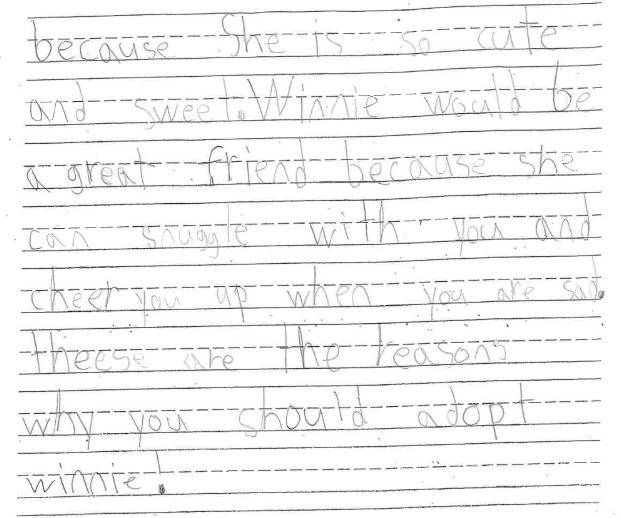 because She is so cute
and sweet. Winnie would be
a great friend because she
can snuggle with you and
cheer you up when you are sad.
theese are the reasons
why you should adopt
winnie!